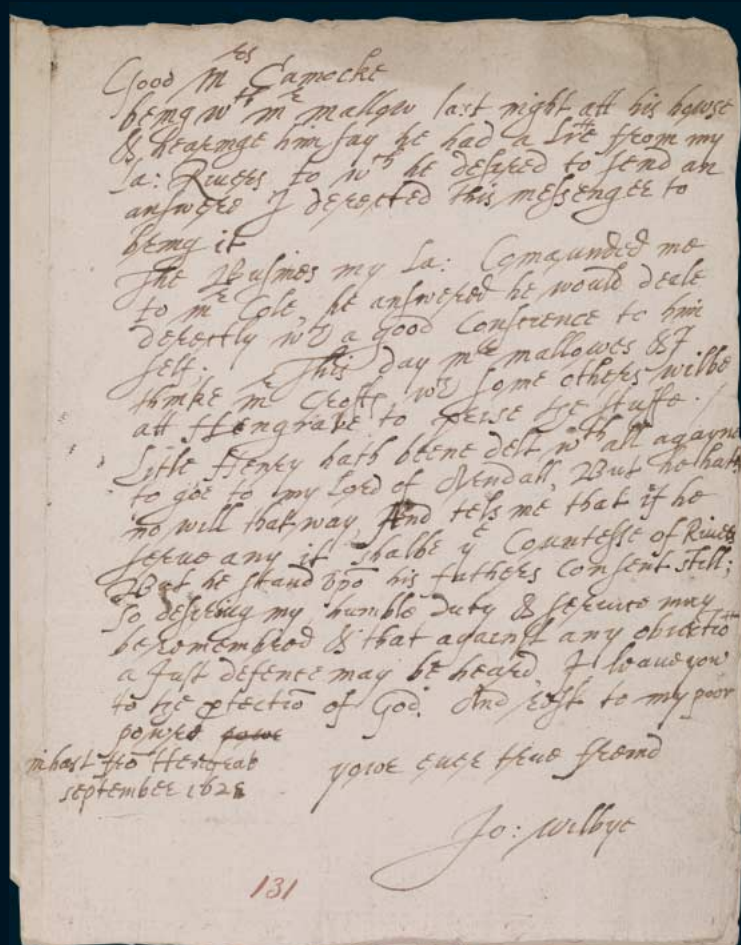 Good Mrs Camocke
being wth mr mallow last night att his howse
& hearinge him say he had a Lre from my
La: Rivers to wch he desired to send an
answere I derected this messenger to
bring it
The Busines my La: Comaunded me
to mr Cole, he answered he would deale
derectly wth a good Conscience to him
self. This day mr mallowes & I
thinke mr Crofts wth some others wilbe
att Hengrave to prise the stuffe.
Litle Henry hath beene delt wth all agayne
to goe to my Lord of Arndall, But he hath
no will that way, And tels me that if he
serve any it shalbe ye Countesse of Rivers
But he stand vpō his fathers Consent still;
so desiring my humble Duty & service may
be remembred & that against any obiectiō
a Just defence may be heard, I leave you
to the ptectiō of God. And rest to my poor
powre powre
in hast frō Hengrave
yowr ever true freind
september 1621
Jo: Wilbye
131